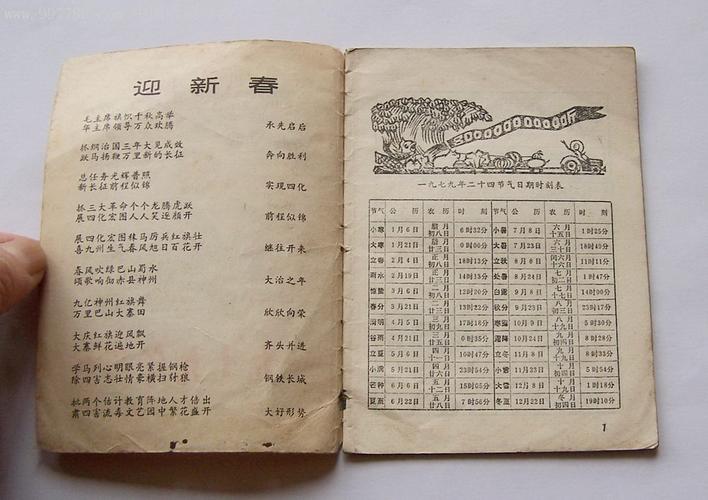 迎新春
毛主席旗帜千秋高举
华主席领导万众欢腾
承先启后
抓纲治国三年大见成效
跃马扬鞭万里新的长征
奔向胜利
总任务光辉普照
新长征前程似锦
实现四化
抓三大革命个个龙腾虎跃
展四化宏图人人笑逐颜开
前程似锦
展四化宏图秣马厉兵红旗壮
喜九州生气春风旭日百花开
继往开来
春风吹绿巴山蜀水
颂歌响彻赤县神州
大治之年
九亿神州红旗舞
万里巴山大寨田
欣欣向荣
大庆红旗迎风飘
大寨鲜花遍地开
齐头并进
学马列心明眼亮紧握钢枪
除四害志壮情豪横扫豺狼
钢铁长城
批两个估计教育阵地人才倍出
肃四害流毒文艺园中繁花盛开
大好形势
一九七九年二十四节气日期时刻表
节气 公历 农历 时刻 节气 公历 农历 时刻
小寒 1月6日 腊月初八日 6时32分 小暑 7月8日 六月十五日 1时25分
大寒 1月21日 腊月廿三日 0时00分 大暑 7月23日 六月三十日 18时49分
立春 2月4日 正月初八日 18时13分 立秋 8月8日 闰六月十六日 11时11分
雨水 2月19日 正月廿三日 时34分 处暑 8月24日 七月初二日 1时47分
惊蛰 3月6日 二月初八日 12时20分 白露 9月8日 七月十七日 14时00分
春分 3月21日 二月廿三日 13时22分 秋分 9月23日 八月初三日 23时17分
清明 4月5日 三月初九日 17时18分 寒露 10月9日 八月十九日 5时30分
谷雨 4月21日 三月廿五日 0时35分 霜降 10月24日 九月初四日 8时28分
立夏 5月6日 四月十一日 时47分 立冬 11月8日 九月十九日 8时33分
小满 5月21日 四月廿六日 时54分 小雪 11月23日 十月初四日 5时54分
芒种 6月6日 五月十二日 15时05分 大雪 12月8日 十月十九日 1时18分
夏至 6月22日 五月廿八日 7时56分 冬至 12月22日 冬月初四日 19时10分
1